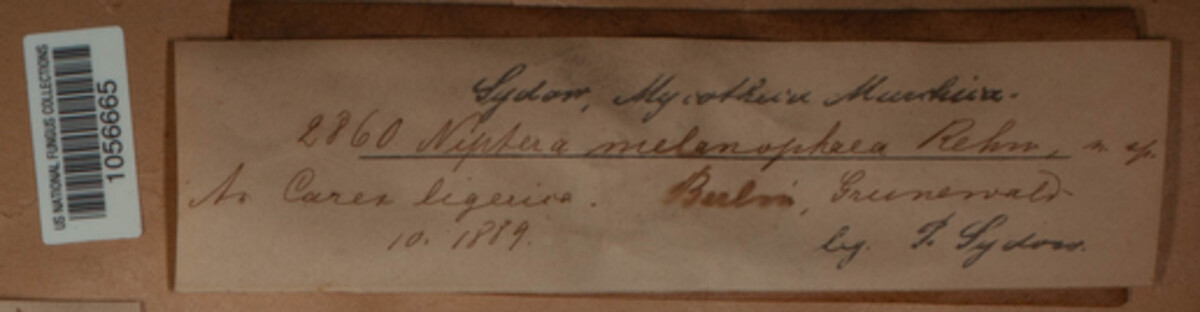 US NATIONAL FUNGUS COLLECTIONS
1056665
Sydow, Mycotheca Marchica.
2860 Niptera melanophaea Rehm, n. sp.
An Carex ligerica. Berlin, Grunewald
10. 1889.
leg. P. Sydow.